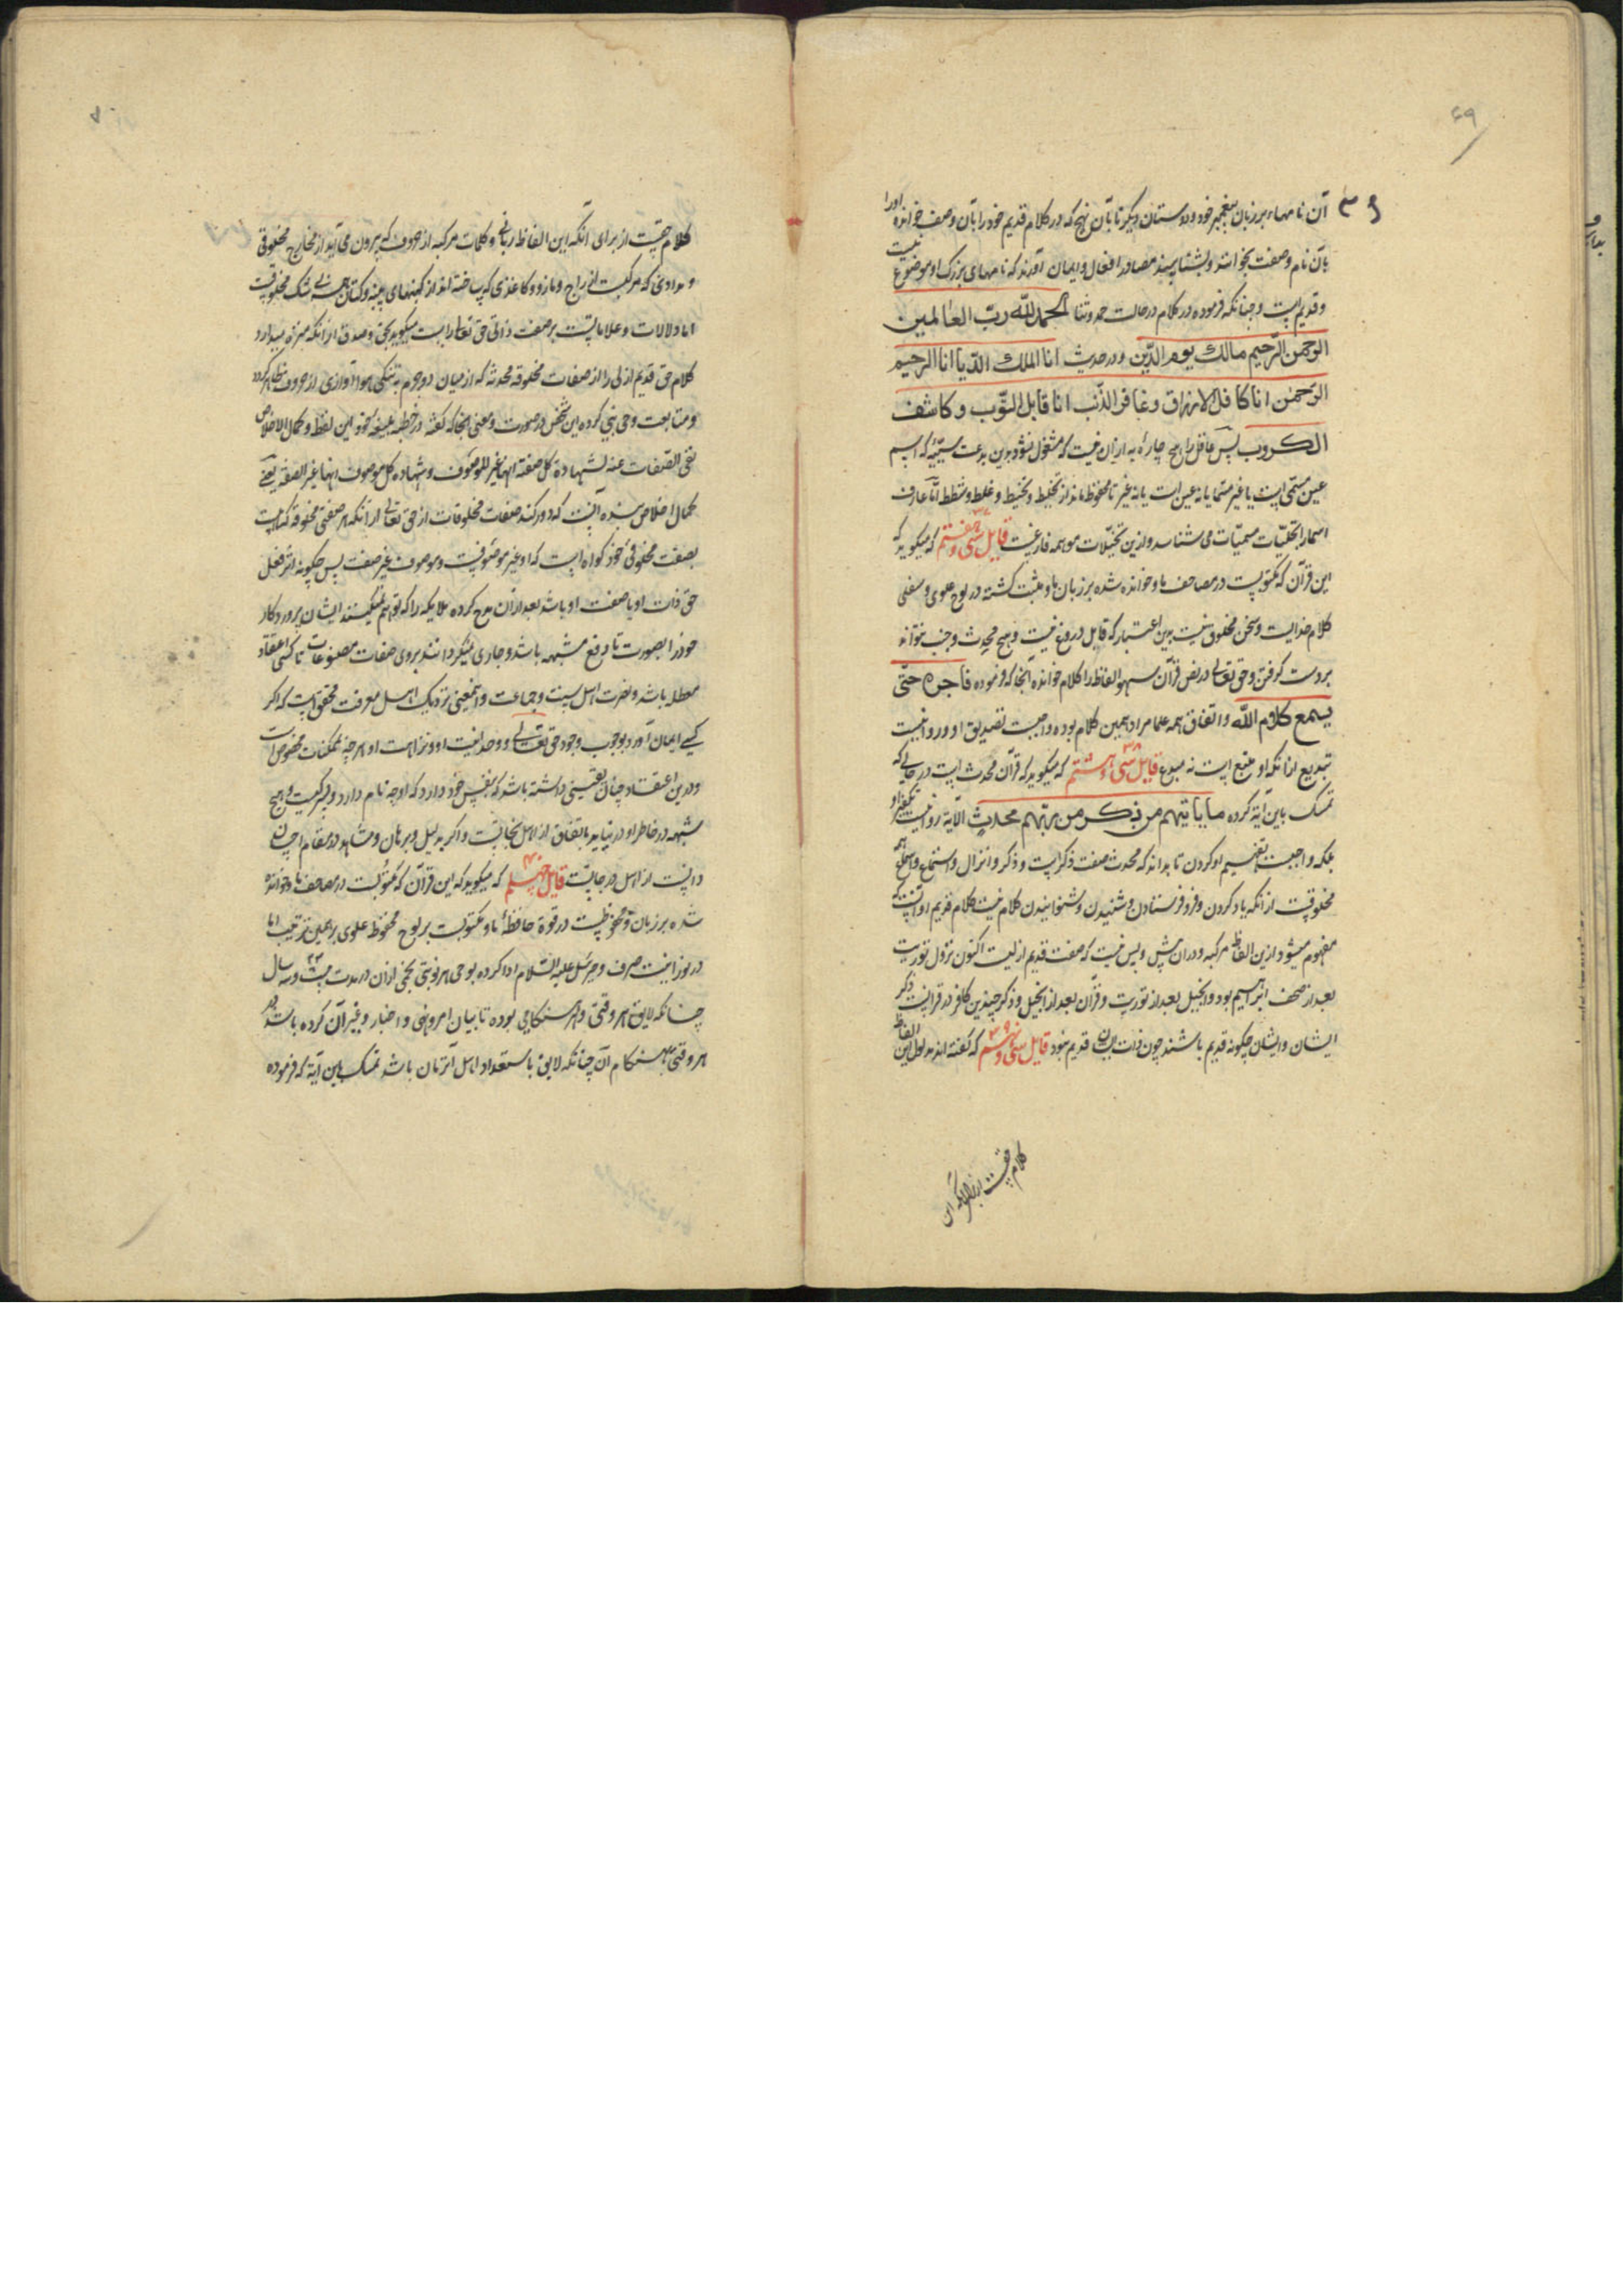 ۶۹
آن نامهاء بر زبان پیغمبر خود و دوستان دیگر تا بآن نهج که در کلام قدیم خود را بآن وصف خوانده اورا
بآن نام و صفت بخوانند و بشناسند مصادر افعال و ایمان آورند که نامهای بزرگ او موضوع نیست
و قدیم است و چنانکه فرموده در کلام در حالت حمد و ثنا الحمد لله ربّ العالمین
الرحمن الرّحیم مالک یوم الدّین و در حدیث انا الملک الدّیا انا الرحیم
الرّحمن انا کافل الارزاق و غافر الذّنب انا قابل التّوب و کاشف
الکروب پس عاقل را هیچ چاره به از ان نیست که مشغول نشود بدین بدعت سیّئه که اسم
عین مسمّی است یا غیر مسمّا یا نه عین است یا نه غیر تا محفوظ ماند از تخلیط و تخبیط و غلط و شطط امّا عارف
اسما را تجلّیات مسمّیات می شناسد و ازین تخیّلات موهمه فارغست قایل سی و هفتم ۳۷ که میگوید که
این قرآن که مکتوبست در مصاحف ما و خوانده شده بر زبان ما و مثبت گشته در لوح علوی و سفلی
کلام خدایست و سخن مخلوق نیست بدین اعتبار که قایل دروغ نیست و هیچ محدث و جنب نتواند
بر دست گرفتن و حق تعالی در نص قرآن سهو الفاظ را کلام خوانده آنجا که فرموده فاجره حتّی
یسمع کلام الله و اتفاق همه علما مراد همین کلام بوده واجبست تصدیق او و روا نیست
تبدیع از انکه او متبع است نه مبدع قایل سی و هشتم ۳۸ که میگوید که قرآن محدث است در حالی که
تمسک باین آیة کرده ما یاتیهم من ذکر من ربّهم محدث الآیة روا نیست تکفیر او
بلکه واجبست تفهیم او کردن تا بداند که محدث صفت ذکرست و ذکر و انزال و استماع و اسماع همه
مخلوقست از انکه یاد کردن و فرو فرستادن و شنیدن و شنوانیدن کلام نیست کلام قدیم او آنست که
مفهوم میشود ازین الفاظ مرکبه و در ان پیش و پس نیست که صفت قدیم ازلیست اکنون نزول توریت
بعد از صحف ابراهیم بود و انجیل بعد از توریت و قرآن بعد از انجیل و ذکر چندین کافر در قرآنست ذکر
ایشان و ایشان چکونه قدیم باشند چون ذات ایشان قدیم نبود قایل سی و نهم ۳۹ که گفته اند مدلول این الفاظ
کلام حقست از برای آنکه این
۷۰
کلام حقست از برای آنکه این الفاظ زبانی و کلمات مرکبه از حروف که برون می آید از مخارج مخلوقی
و مدادی که مرکبست از زاج و مازو و کاغذی که ساخته اند از کهنهای پنبه و کتان همه بی شک مخلوقست
اما دلالات و علاماتست بر صفت ذاتی حق تعالی راست میگوید بحق و صدق از انکه منزه میدارد
کلام حق قدیم ازلی را از صفات مخلوقه محدثه که از میان دو جرم به تنگی هوا آوازی از حروف ظاهر گردد
و متابعت وصی نبی کرده این شخص در صورت و معنی آنجا که گفته در خطبه بلیغه خود این لفظ و کمال الاخلاص
نفی الصّفات عنه لشهادة کل صفة انها غیر الموصوف و شهادة کل موصوف انها غیر الصفة یعنی
کمال اخلاص بنده آنست که دور کند صفات مخلوقات از حق تعالی از انکه هر صفتی مخلوقه که هست
بصفت مخلوقی خود گواه است که او غیر موصوفیست و موصوف غیر صفت پس چگونه اثر فعل
حق ذات او یا صفت او باشد بعد از ان مدح کرده ملایکه را که توهم نمیکنند ایشان پروردکار
خود را بصورت تا دفع مشبهه باشد و جاری نمیگردانند بروی صفات مصنوعات تا کسی اعتقاد
معطله باشد و نصرت اهل سنت و جماعت و اینمعنی نزدیک اهل معرفت محقق است که اکر
کسی ایمان آورد بوجوب وجود حق تعالی و وحدانیت او و نزاهت او هر چه بممکنات مخصوص است
و درین اعتقاد چنان یقینی داشته باشد که بنفس خود دارد که او چه نام دارد و پسر کیست و هیچ
شبهه در خاطر او در نیاید باتفاق از اهل نجاتست و اکر بدلیل و برهان و مشاهده در مقام احسان
دانست از اهل درجاتست قایل چهلم ۴۰ که میگوید که این قرآن که مکتوبست در مصاحف ما و خوانده
شده بر زبان و محفوظست در قوة حافظهٔ ما و مکتوبست بر لوح محفوظ علوی بر همین ترتیب اما
در نور اینست صرف و مرسل علیه السّلام ادا کرده بوحی هر نوبتی بخشی از ان در مدت بیست و سه ۲۳ سال
چنانکه لایق هر وقتی و هر هنکامی بوده تا بیان امر و نهی و اخبار و غیر آن کرده باشد در
هر وقتی و هنکام آن چنانکه لایق باستعداد اهل آن زمان باشد تمسک باین آیة که فرموده